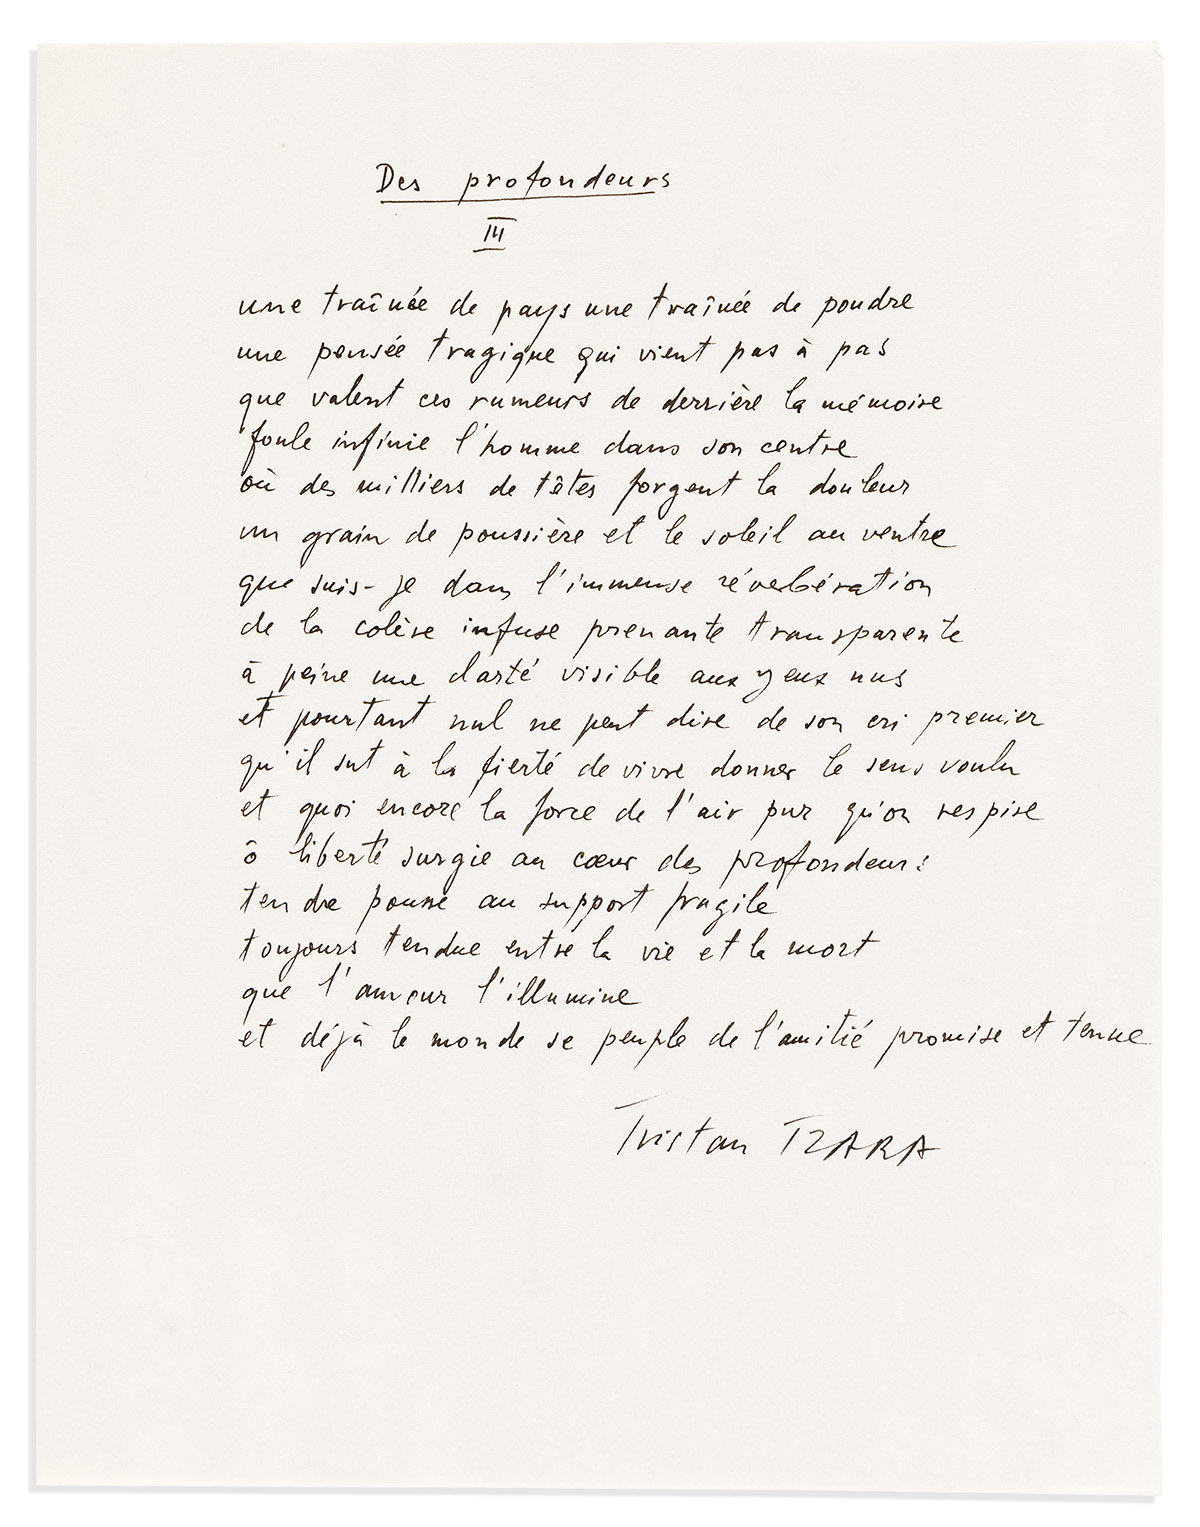 Des profondeurs
III
une traînée de pays une traînée de poudre
une pensée tragique qui vient pas à pas
que valent ces rumeurs de derrière la mémoire
foule infinie l'homme dans son centre
où des milliers de têtes forgent la douleur
un grain de poussière et le soleil au ventre
que suis-je dans l'immense réverbération
de la colère infuse prenante transparente
à peine une clarté visible aux yeux nus
et pourtant nul ne peut dire de son cri premier
qu'il sut à la fierté de vivre donner le sens voulu
et quoi encore la force de l'air pur qu'on respire
ô liberté surgie au cœur des profondeurs
tendre pousse au support fragile
toujours tendue entre la vie et la mort
que l'amour l'illumine
et déjà le monde se peuple de l'amitié promise et tenue
Tristan TZARA